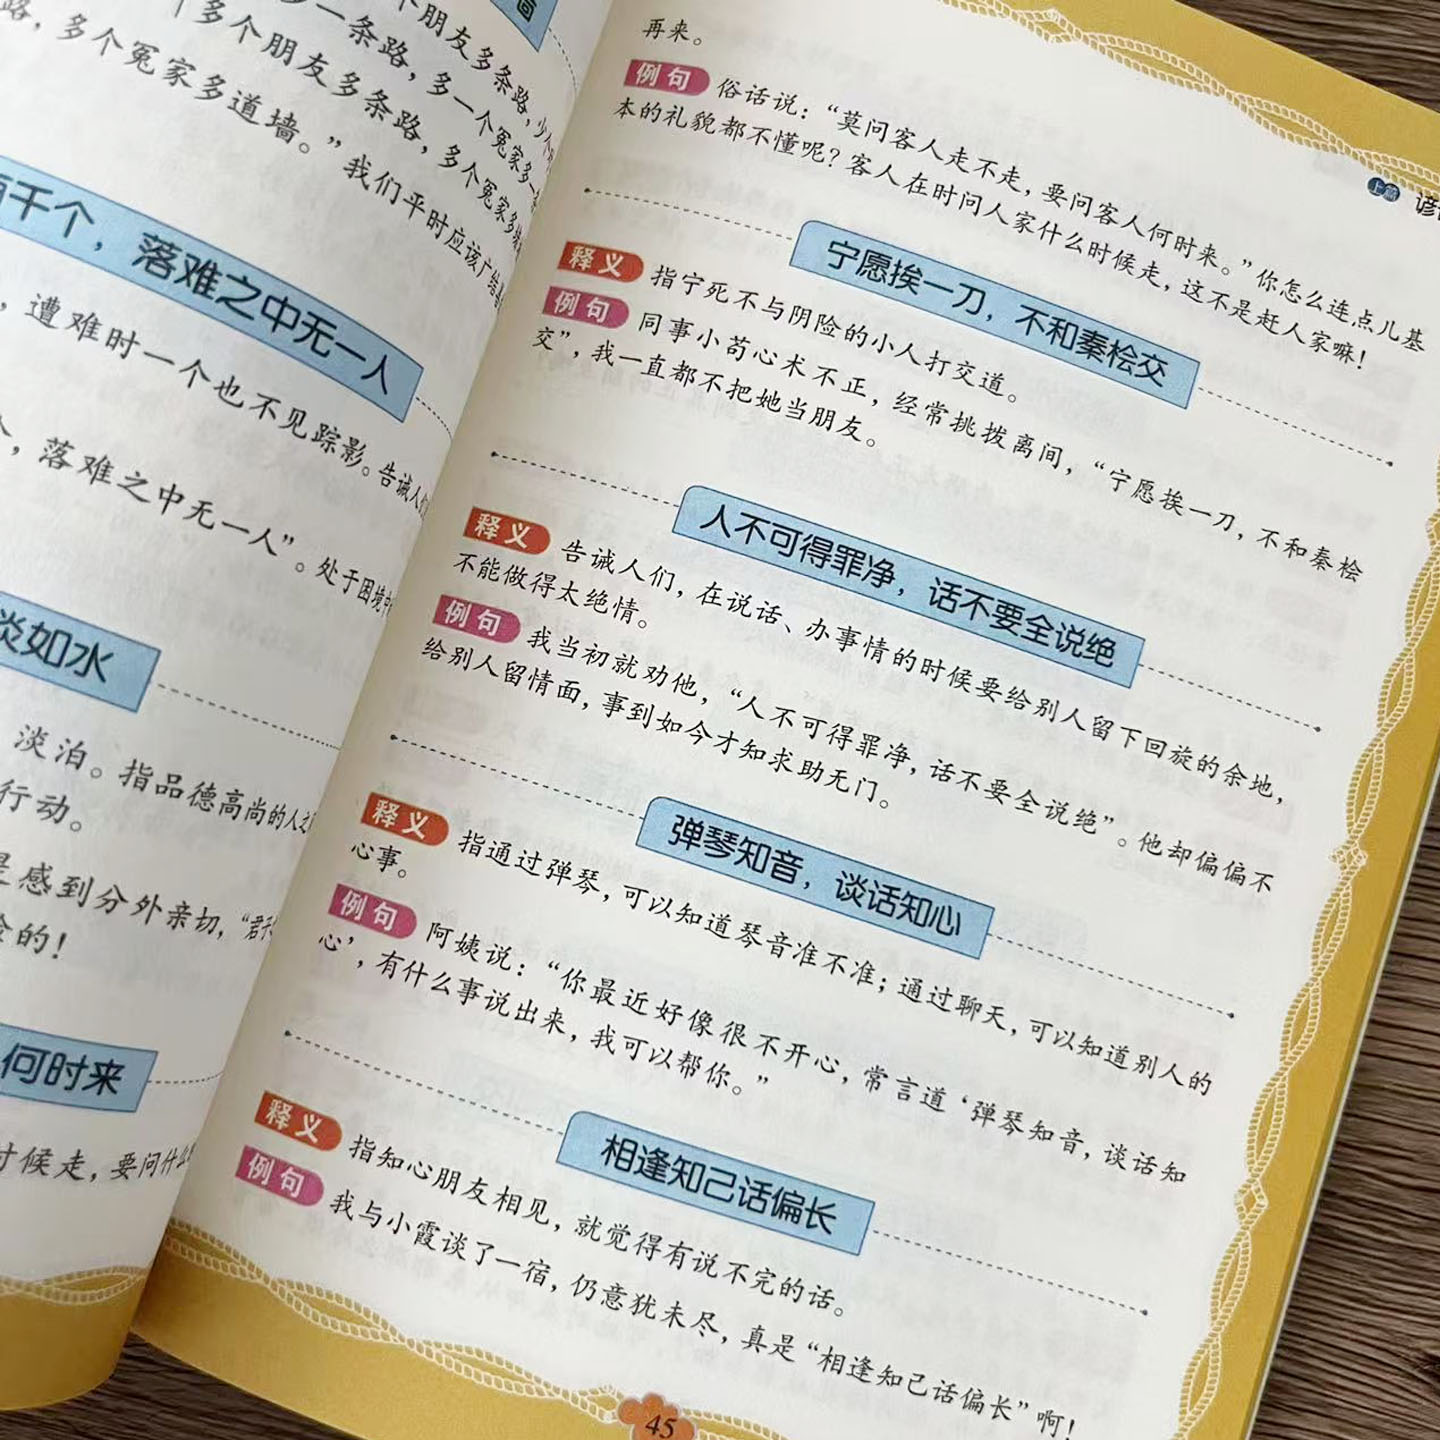 个朋友多条路，少个
多一条路，多一个冤家多一
多个朋友多条路，多个冤家多
路，多个冤家多道墙。”我们平时应该广结
千个，落难之中无一人
，遭难时一个也不见踪影。告诫人们
，落难之中无一人”。处于困境中
淡如水
淡泊。指品德高尚的人之
行动。
是感到分外亲切，“君子
的！
何时来
时候走，要问什么
上篇
谚
再来。
例句 俗话说：“莫问客人走不走，要问客人何时来。”你怎么连点儿基
本的礼貌都不懂呢？客人在时问人家什么时候走，这不是赶人家嘛！
宁愿挨一刀，不和秦桧交
释义 指宁死不与阴险的小人打交道。
例句 同事小苟心术不正，经常挑拨离间，“宁愿挨一刀，不和秦桧
交”，我一直都不把她当朋友。
人不可得罪净，话不要全说绝
释义 告诫人们，在说话、办事情的时候要给别人留下回旋的余地，
不能做得太绝情。
例句 我当初就劝他，“人不可得罪净，话不要全说绝”。他却偏偏不
给别人留情面，事到如今才知求助无门。
弹琴知音，谈话知心
释义 指通过弹琴，可以知道琴音准不准；通过聊天，可以知道别人的
心事。
例句 阿姨说：“你最近好像很不开心，常言道‘弹琴知音，谈话知
心’，有什么事说出来，我可以帮你。”
相逢知己话偏长
释义 指知心朋友相见，就觉得有说不完的话。
例句 我与小霞谈了一宿，仍意犹未尽，真是“相逢知己话偏长”啊！
45